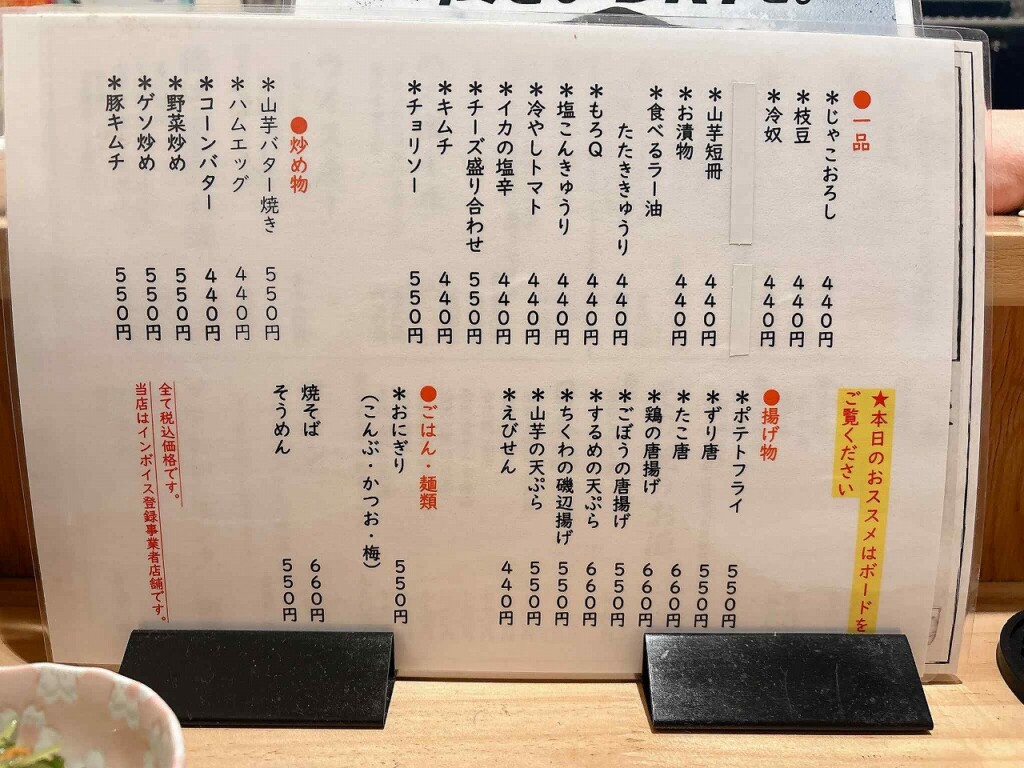 ●一品
＊じゃこおろし 440円
＊枝豆 440円
＊冷奴 440円
＊山芋短冊 440円
＊お漬物 440円
＊食べるラー油
たたききゅうり 440円
＊もろQ 440円
＊塩こんきゅうり 440円
＊冷やしトマト 440円
＊イカの塩辛 440円
＊チーズ盛り合わせ 550円
＊キムチ 440円
＊チョリソー 550円
●炒め物
＊山芋バター焼き 550円
＊ハムエッグ 440円
＊コーンバター 440円
＊野菜炒め 550円
＊ゲソ炒め 550円
＊豚キムチ 550円
★本日のおススメはボードを
ご覧ください
●揚げ物
＊ポテトフライ 550円
＊ずり唐 550円
＊たこ唐 660円
＊鶏の唐揚げ 660円
＊ごぼうの唐揚げ 550円
＊するめの天ぷら 660円
＊ちくわの磯辺揚げ 550円
＊山芋の天ぷら 550円
＊えびせん 440円
●ごはん・麺類
＊おにぎり 550円
（こんぶ・かつお・梅）
焼そば 660円
そうめん 550円
全て税込価格です。
当店はインボイス登録事業者店舗です。